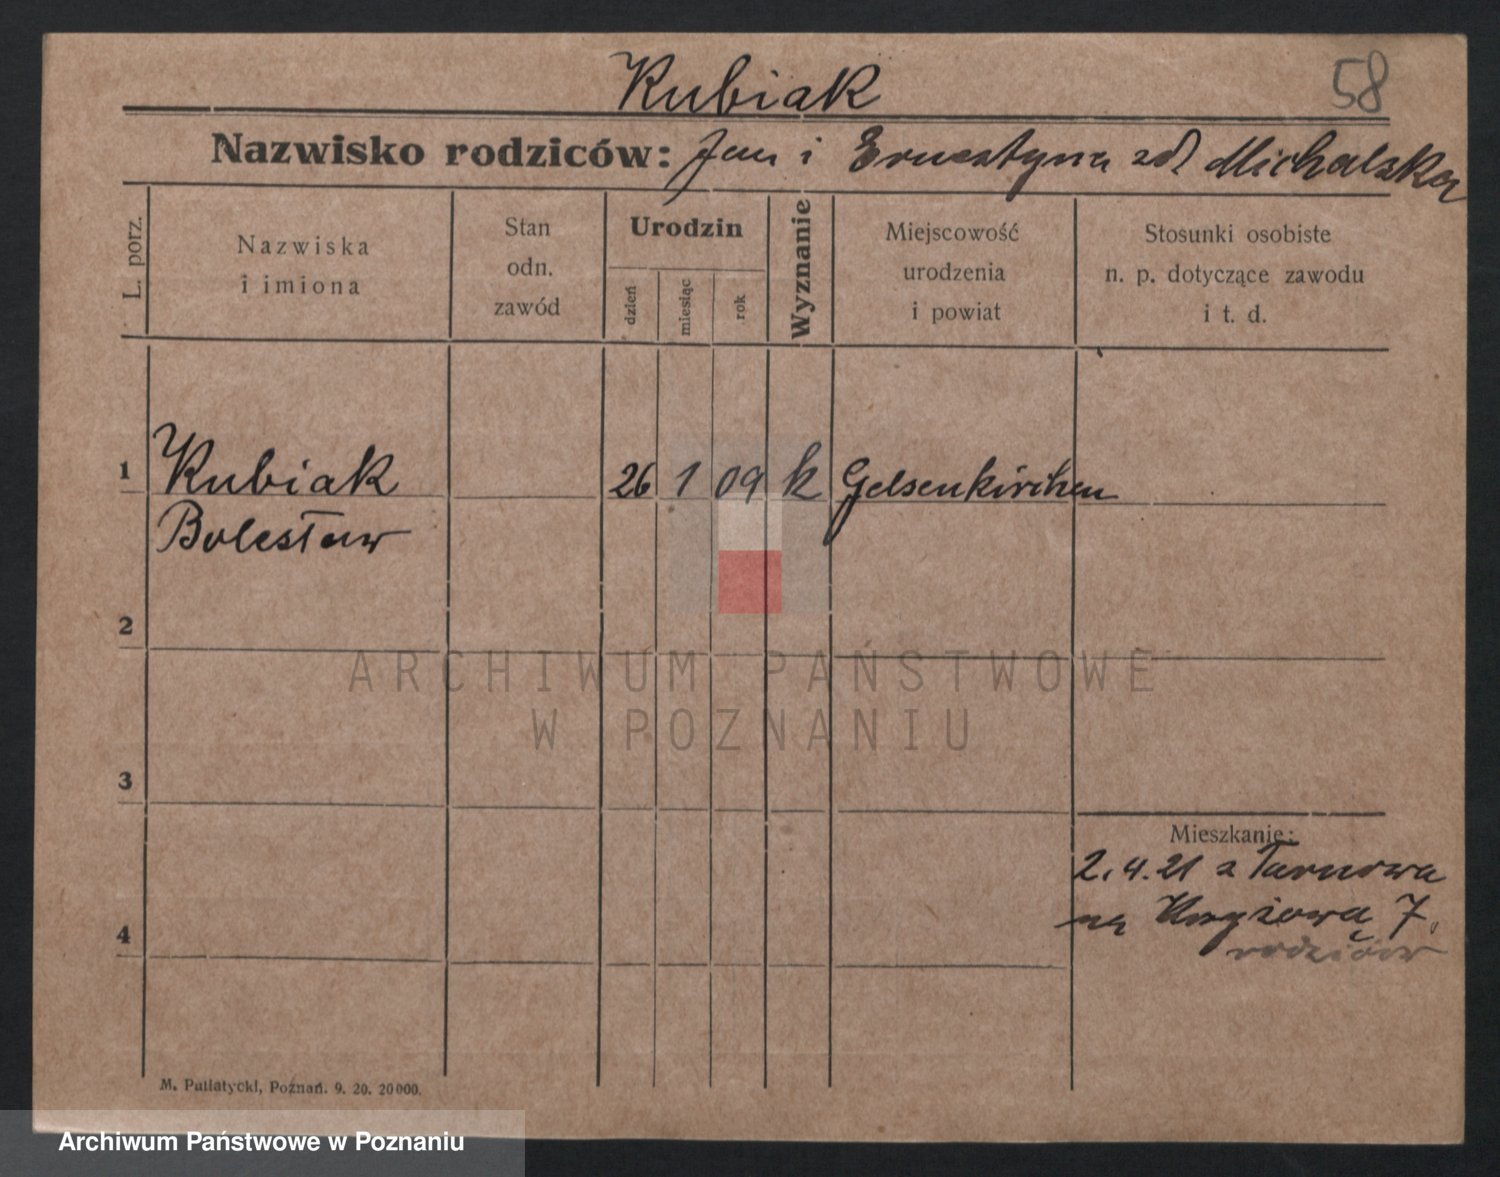 Kubiak
58
Nazwisko rodziców: Jan i Ernestyna zd Michalska
L. porz.
Nazwiska
i imiona
Stan
odn.
zawód
Urodzin
dzień
miesiąc
rok
Wyznanie
Miejscowość
urodzenia
i powiat
Stosunki osobiste
n. p. dotyczące zawodu
i t. d.
1 Kubiak 26 1 09 k Gelsenkirchen
Bolesław
2
ARCHIWUM PAŃSTWOWE
W POZNANIU
3
Mieszkanie:
2.4.21 z Tarnowa
na Krzyżową 7.
rodziców
4
M. Putiatycki, Poznań. 9. 20. 20000.
Archiwum Państwowe w Poznaniu